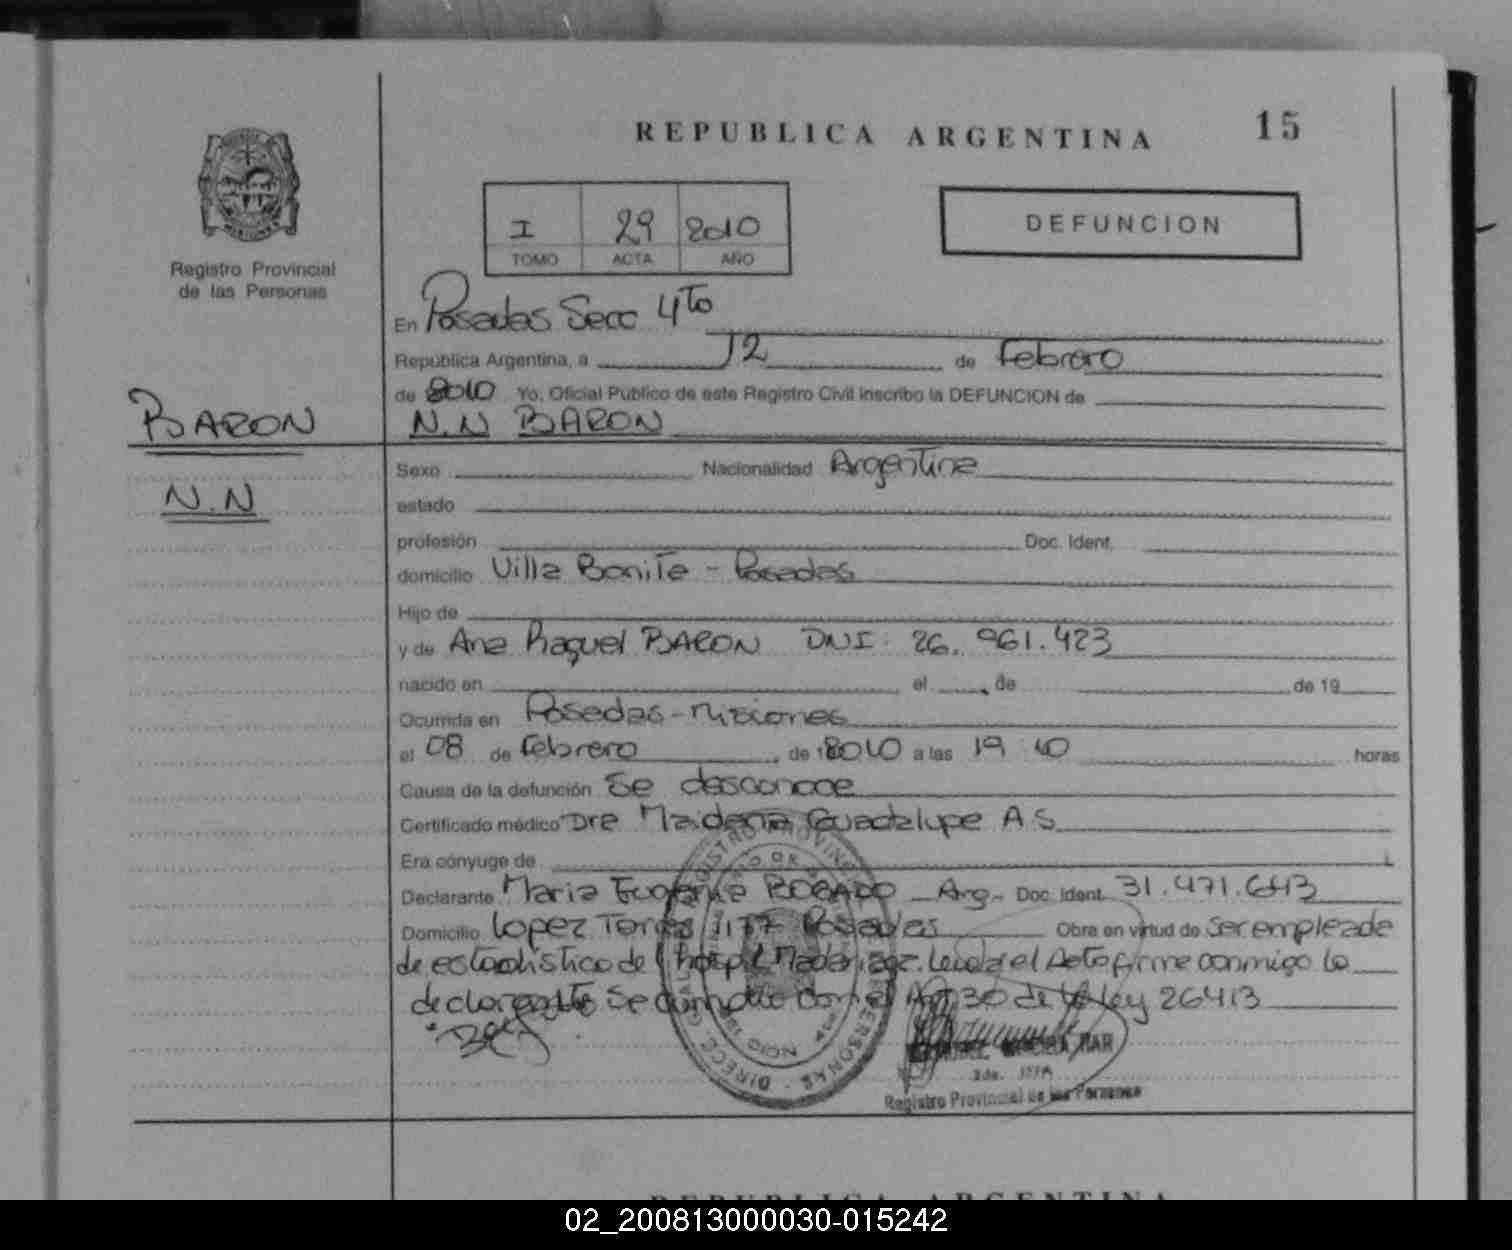 REPUBLICA ARGENTINA
15
I 29 2010
TOMO ACTA AÑO
DEFUNCION
Registro Provincial
de las Personas
En Posadas Secc 4to
República Argentina, a 12 de Febrero
de 2010 Yo, Oficial Público de este Registro Civil inscribo la DEFUNCION de
BARON
N.N BARON
Sexo Nacionalidad Argentina
N.N
estado
profesión Doc. Ident.
domicilio Villa Bonita - Posadas
Hijo de
y de Ana Raquel BARON DNI: 26.961.423
nacido en el de de 19
Ocurrida en Posadas - Misiones
el 08 de Febrero de 2010 a las 19:10 horas
Causa de la defunción Se desconoce
Certificado médico Dra Maidana Guadalupe A.S.
Era cónyuge de
Declarante Maria Eugenia BOGADO Arg- Doc. Ident. 31.471.643
Domicilio Lopez Torres 1177 Posadas Obra en virtud de Ser empleada
de estadistica del hospil Madariaga. Leida el Acta firma conmigo la
declarante Se cumplio con el Art 30 de la ley 26413
Registro Provincial de las Personas
REPUBLICA ARGENTINA
02_200813000030-015242